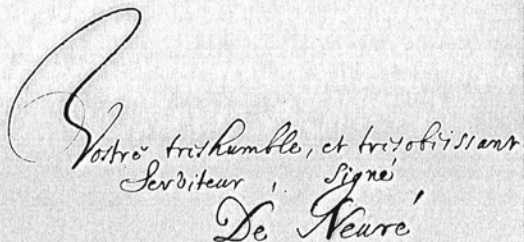 Vostre treshumble, et tresobeissant
Serviteur, signé
De Neuré